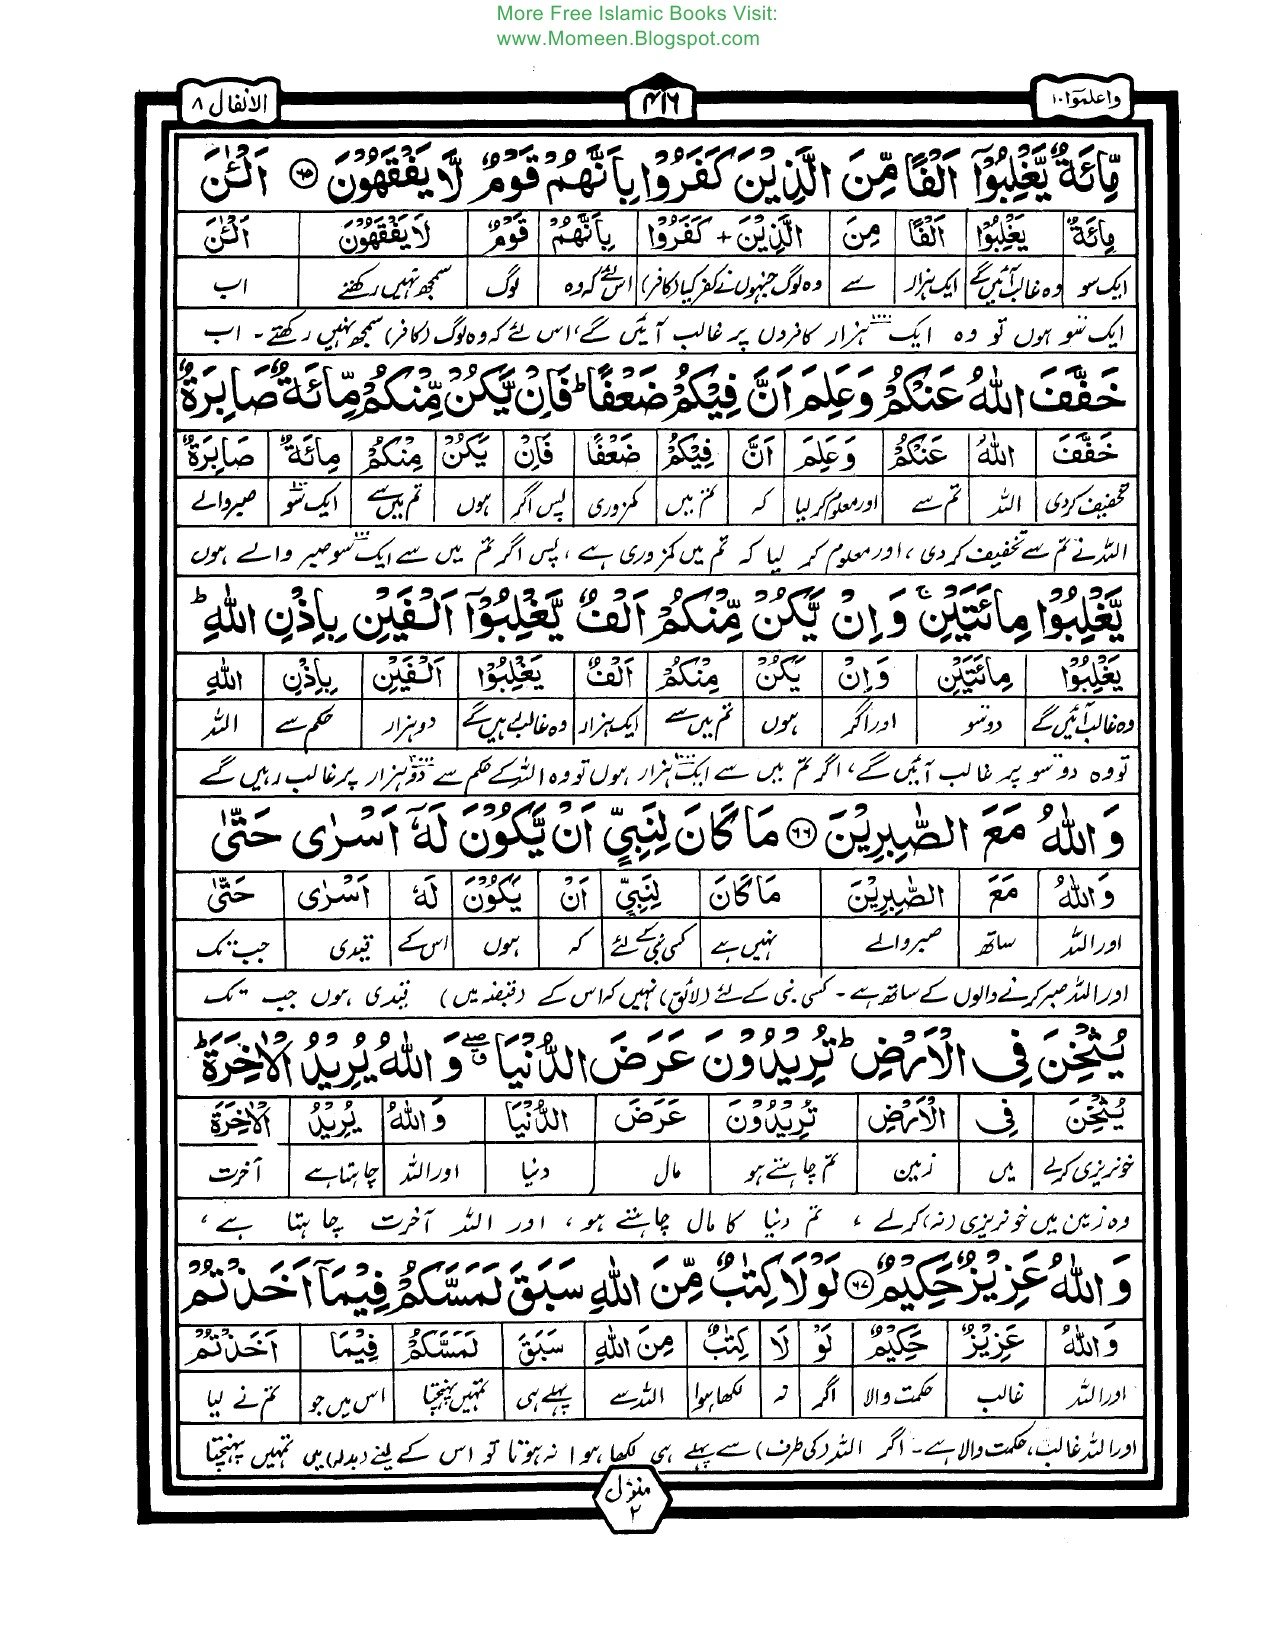 More Free Islamic Books Visit:
www.Momeen.Blogspot.com
واعلموا ۱۰ ۴۱۶ الانفال ۸
مِّائَةٌ يَّغْلِبُوْۤا اَلْفًا مِّنَ الَّذِيْنَ كَفَرُوْا بِاَنَّهُمْ قَوْمٌ لَّا يَفْقَهُوْنَ ﴿۶۵﴾ اَلْـٰٔنَ
مِائَةٌ يَغْلِبُوْا اَلْفًا مِنَ الَّذِيْنَ + كَفَرُوْا بِاَنَّهُمْ قَوْمٌ لَا يَفْقَهُوْنَ اَلْـٰٔنَ
ایک سو وہ غالب آئیں گے ایک ہزار سے وہ لوگ جنہوں نے کفر کیا (کافر) اس لئے کہ وہ لوگ سمجھ نہیں رکھتے اب
ایک سو ہوں تو وہ ایک ہزار کافروں پر غالب آئیں گے، اس لئے کہ وہ لوگ (کافر) سمجھ نہیں رکھتے۔ اب
خَفَّفَ اللّٰهُ عَنْكُمْ وَعَلِمَ اَنَّ فِيْكُمْ ضَعْفًا ؕ فَاِنْ يَّكُنْ مِّنْكُمْ مِّائَةٌ صَابِرَةٌ
خَفَّفَ اللّٰهُ عَنْكُمْ وَعَلِمَ اَنَّ فِيْكُمْ ضَعْفًا فَاِنْ يَكُنْ مِنْكُمْ مِائَةٌ صَابِرَةٌ
تخفیف کر دی اللہ تم سے اور معلوم کر لیا کہ تم میں کمزوری پس اگر ہوں تم میں سے ایک سو صبر والے
اللہ نے تم سے تخفیف کر دی، اور معلوم کر لیا کہ تم میں کمزوری ہے، پس اگر تم میں سے ایک سو صبر والے ہوں
يَّغْلِبُوْا مِائَتَيْنِ ۚ وَاِنْ يَّكُنْ مِّنْكُمْ اَلْفٌ يَّغْلِبُوْۤا اَلْفَيْنِ بِاِذْنِ اللّٰهِ ؕ
يَغْلِبُوْا مِائَتَيْنِ وَاِنْ يَكُنْ مِنْكُمْ اَلْفٌ يَغْلِبُوْا اَلْفَيْنِ بِاِذْنِ اللّٰهِ
وہ غالب آئیں گے دو سو اور اگر ہوں تم میں سے ایک ہزار وہ غالب رہیں گے دو ہزار حکم سے اللہ
تو وہ دو سو پر غالب آئیں گے، اگر تم میں سے ایک ہزار ہوں تو وہ اللہ کے حکم سے دو ہزار پر غالب رہیں گے
وَاللّٰهُ مَعَ الصّٰبِرِيْنَ ﴿۶۶﴾ مَا كَانَ لِنَبِيٍّ اَنْ يَّكُوْنَ لَهٗۤ اَسْرٰى حَتّٰى
وَاللّٰهُ مَعَ الصّٰبِرِيْنَ مَا كَانَ لِنَبِيٍّ اَنْ يَكُوْنَ لَهٗ اَسْرٰى حَتّٰى
اور اللہ ساتھ صبر والے نہیں ہے کسی نبی کے لئے کہ ہوں اس کے قیدی جب تک
اور اللہ صبر کرنے والوں کے ساتھ ہے۔ کسی نبی کے لئے (لائق) نہیں کہ اس کے (قبضہ میں) قیدی ہوں جب تک
يُثْخِنَ فِى الْاَرْضِ ؕ تُرِيْدُوْنَ عَرَضَ الدُّنْيَا ۖ وَاللّٰهُ يُرِيْدُ الْاٰخِرَةَ ؕ
يُثْخِنَ فِى الْاَرْضِ تُرِيْدُوْنَ عَرَضَ الدُّنْيَا وَاللّٰهُ يُرِيْدُ الْاٰخِرَةَ
خونریزی کرلے میں زمین تم چاہتے ہو مال دنیا اور اللہ چاہتا ہے آخرت
وہ زمین میں خونریزی (نہ) کرلے، تم دنیا کا مال چاہتے ہو، اور اللہ آخرت چاہتا ہے،
وَاللّٰهُ عَزِيْزٌ حَكِيْمٌ ﴿۶۷﴾ لَوْلَا كِتٰبٌ مِّنَ اللّٰهِ سَبَقَ لَمَسَّكُمْ فِيْمَاۤ اَخَذْتُمْ
وَاللّٰهُ عَزِيْزٌ حَكِيْمٌ لَوْ لَا كِتٰبٌ مِنَ اللّٰهِ سَبَقَ لَمَسَّكُمْ فِيْمَا اَخَذْتُمْ
اور اللہ غالب حکمت والا اگر نہ لکھا ہوا اللہ سے پہلے ہی تمہیں پہنچتا اس میں جو تم نے لیا
اور اللہ غالب، حکمت والا ہے۔ اگر اللہ (کی طرف) سے پہلے ہی لکھا ہوا نہ ہوتا تو اس کے لینے (بدلہ) میں تمہیں پہنچتا
منزل
۲